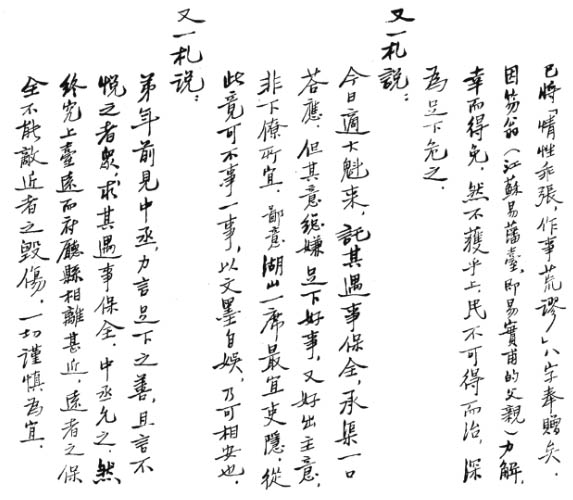 已將「情性乖張，作事荒謬」八字奉贈矣．
因笏翁（江蘇易藩臺，即易實甫的父親）力解，
幸而得免，然不獲乎上，民不可得而治，深
為足下危之．
又一札說：
今日適大魁來，託其遇事保全，承渠一口
答應，但其意總嫌足下好事，又好出主意，
非下僚所宜．鄙意湖山一席最宜吏隱，從
此竟可不事一事，以文墨自娛，乃可相安也．
又一札說：
弟年前見中丞，力言足下之善，且言不
悅之者眾，求其遇事保全．中丞允之，然
終究上臺遠而府廳縣相離甚近，遠者之保
全不能敵近者之毀傷，一切謹慎為宜．